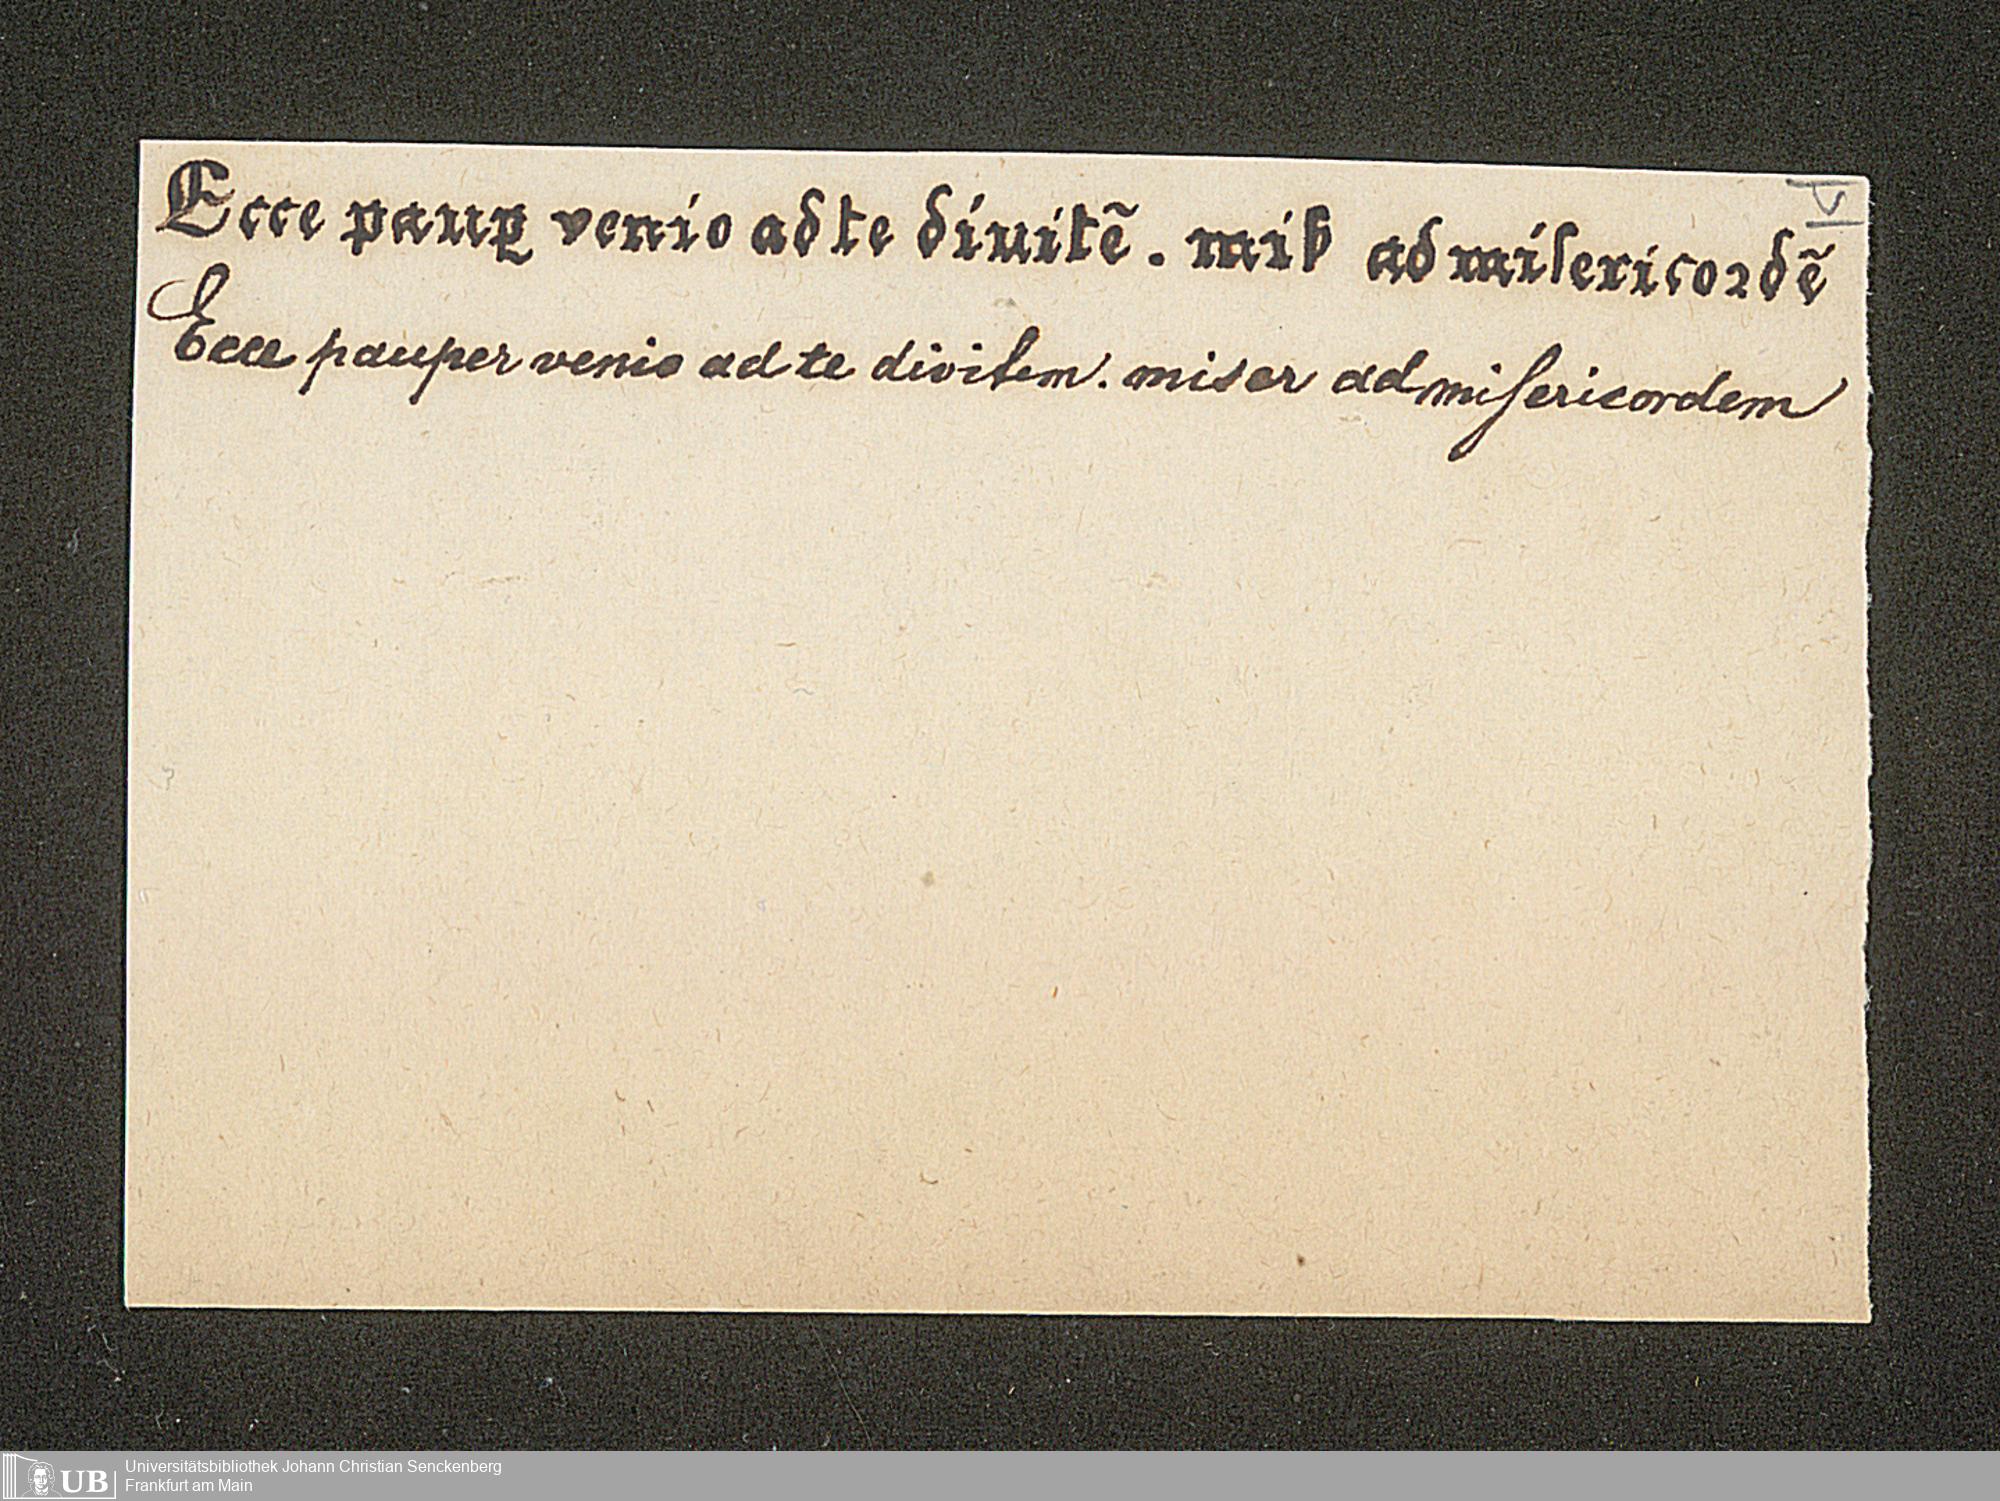 Ecce pauꝑ venio ad te diuitē . miẜ ad misericordē
Ecce pauper venio ad te divitem . miser ad miſericordem
UB
Universitätsbibliothek Johann Christian Senckenberg
Frankfurt am Main